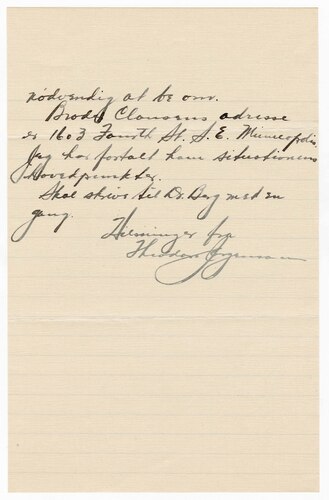 nödvendig at be om.
Brodr Clausens adresse
er 1603 Fourth St. S. E. Minneapolis
Jeg har fortalt ham situationens
hovedpunkter.
Skal skrive til Dr. Berg med en
gang.
Hilsninger fra
Theodor Jorgenson